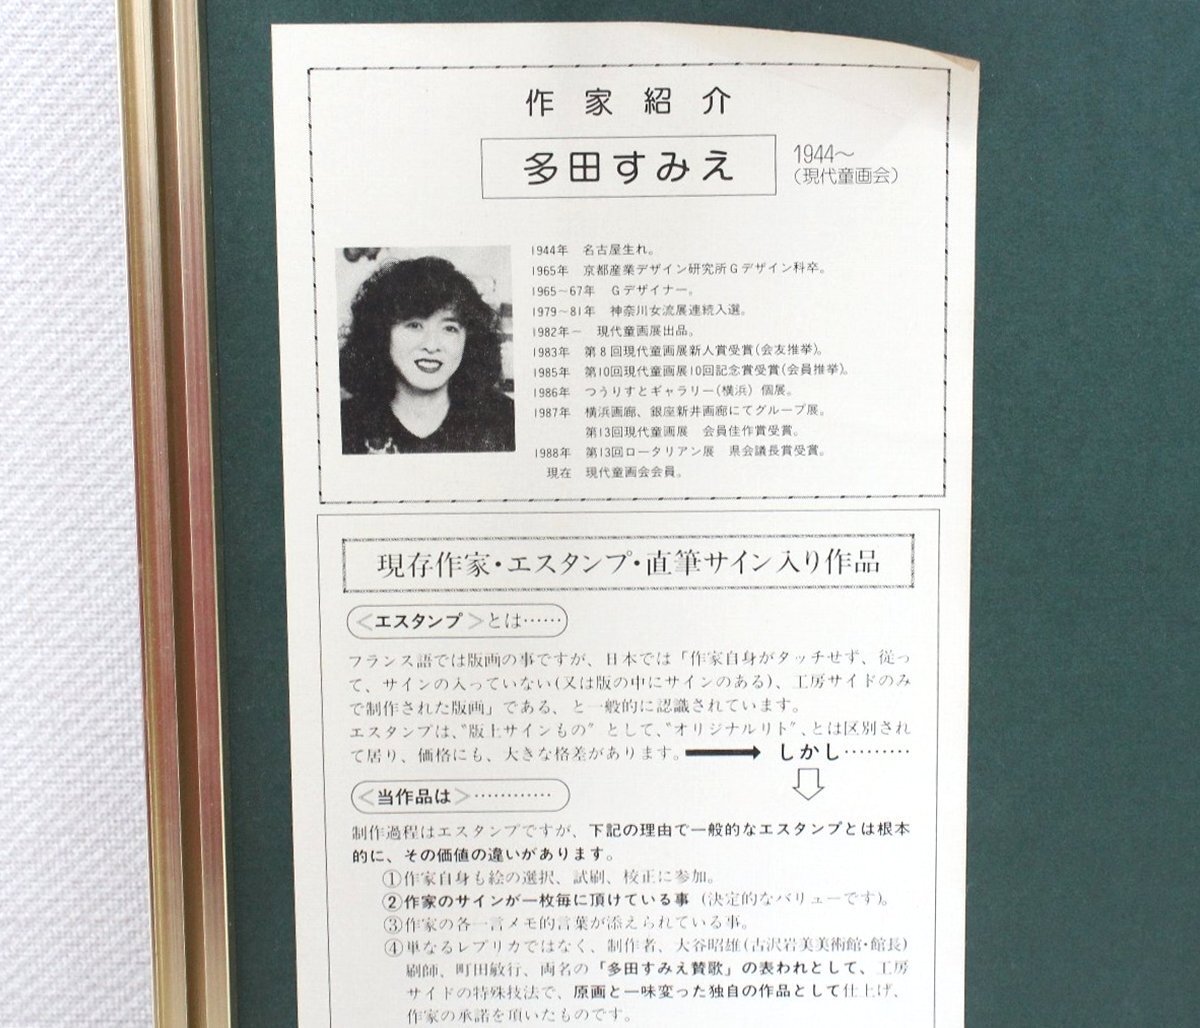 作家紹介
多田すみえ
1944〜
(現代童画会)
1944年 名古屋生れ。
1965年 京都産業デザイン研究所Gデザイン科卒。
1965〜67年 Gデザイナー。
1979〜81年 神奈川女流展連続入選。
1982年− 現代童画展出品。
1983年 第8回現代童画展新人賞受賞(会友推挙)。
1985年 第10回現代童画展10回記念賞受賞(会員推挙)。
1986年 つうりすとギャラリー(横浜)個展。
1987年 横浜画廊、銀座新井画廊にてグループ展。
第13回現代童画展 会員佳作賞受賞。
1988年 第13回ロータリアン展 県会議長賞受賞。
現在 現代童画会会員。
現存作家・エスタンプ・直筆サイン入り作品
<エスタンプ>とは……
フランス語では版画の事ですが、日本では「作家自身がタッチせず、従っ
て、サインの入っていない(又は版の中にサインのある)、工房サイドのみ
で制作された版画」である、と一般的に認識されています。
エスタンプは、〝版上サインもの〟として、〝オリジナルリト〟、とは区別され
て居り、価格にも、大きな格差があります。➡ しかし………
<当作品は>…………
制作過程はエスタンプですが、下記の理由で一般的なエスタンプとは根本
的に、その価値の違いがあります。
①作家自身も絵の選択、試刷、校正に参加。
②作家のサインが一枚毎に頂けている事(決定的なバリューです)。
③作家の各一言メモ的言葉が添えられている事。
④単なるレプリカではなく、制作者、大谷昭雄(古沢岩美美術館・館長)
刷師、町田敏行、両名の「多田すみえ賛歌」の表われとして、工房
サイドの特殊技法で、原画と一味変った独自の作品として仕上げ、
作家の承諾を頂いたものです。